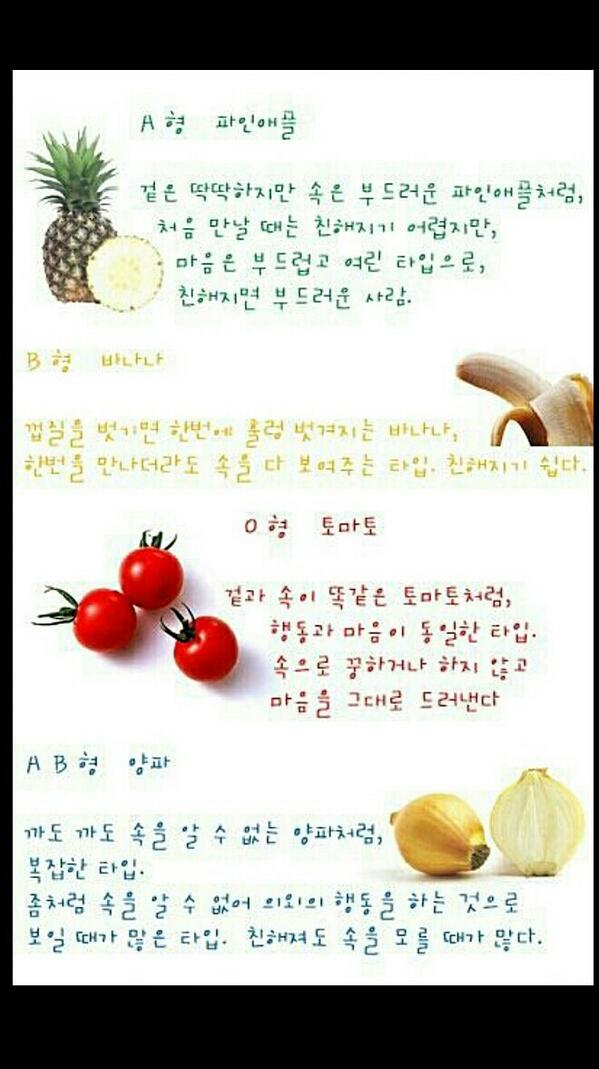 A형 파인애플
겉은 딱딱하지만 속은 부드러운 파인애플처럼,
처음 만날 때는 친해지기 어렵지만,
마음은 부드럽고 여린 타입으로,
친해지면 부드러운 사람.
B형 바나나
껍질을 벗기면 한번에 홀렁 벗겨지는 바나나,
한번을 만나더라도 속을 다 보여주는 타입. 친해지기 쉽다.
O형 토마토
겉과 속이 똑같은 토마토처럼,
행동과 마음이 동일한 타입.
속으로 꿍하거나 하지 않고
마음을 그대로 드러낸다
AB형 양파
까도 까도 속을 알 수 없는 양파처럼,
복잡한 타입.
좀처럼 속을 알 수 없어 의외의 행동을 하는 것으로
보일 때가 많은 타입. 친해져도 속을 모를 때가 많다.